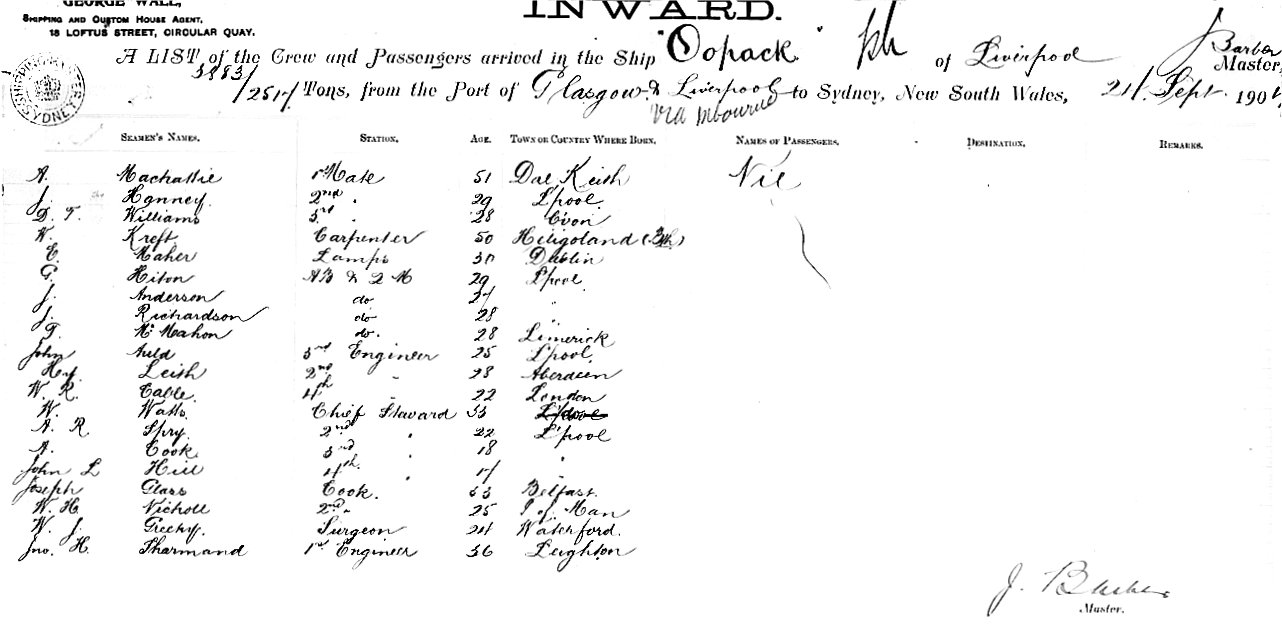 GEORGE WALL,
SHIPPING AND CUSTOM HOUSE AGENT,
18 LOFTUS STREET, CIRCULAR QUAY.
INWARD.
A LIST of the Crew and Passengers arrived in the Ship "Oopack" of Liverpool J Barber Master,
3883/2517 Tons, from the Port of Glasgow & Liverpool to Sydney, New South Wales, 24 Sept 190
via
SEAMEN'S NAMES. STATION. AGE. TOWN OR COUNTRY WHERE BORN. NAMES OF PASSENGERS. DESTINATION. REMARKS.
A. Machattie 1st Mate 51 Dal Keith Nil
J. Hanney 2nd " 29 L'pool
D. T. Williams 3rd 28
W. Kreft Carpenter 50 Heligoland
E. Maher Lamps 30 Dublin
G. Hilton AB & Q M 29 L'pool
J. Anderson do "
J. Richardson do 28 "
T. McMahon do. 28 Limerick
John Auld 3rd Engineer 25 L'pool
Hy. Leith 2nd " 28 Aberdeen
W. R. Cable 4th 22 London
W. Watts Chief Steward 33 L'pool
A. R Spry 2nd " 22 L'pool
A. Cook 3rd " 18 "
John L Hill 4th " 17 "
Joseph Glass Cook. 33 Belfast.
W. H. Nicholl 2nd " 25 I of Man
W. J. Surgeon 24 Waterford.
Jno. H. Sharmand 1st Engineer 36 Leighton
J. Barber
Master.